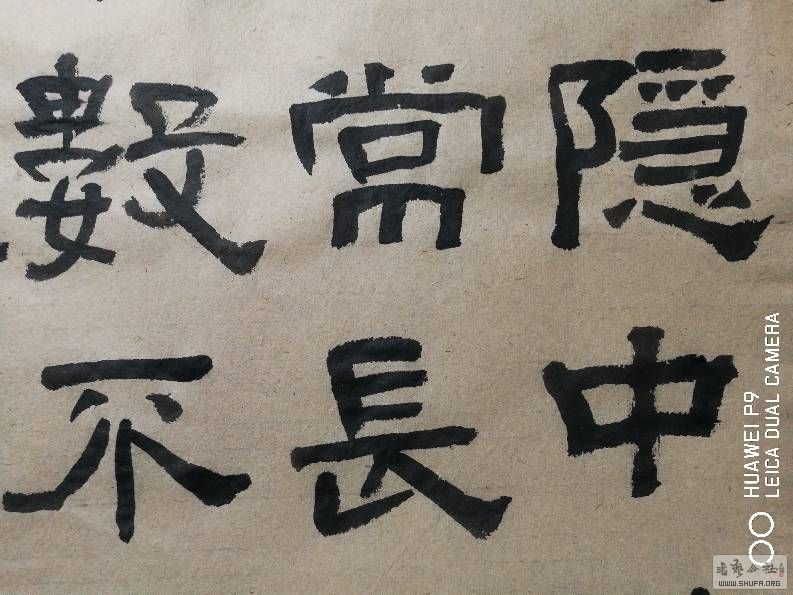 隱中
常長
數不
HUAWEI P9
LEICA DUAL CAMERA
书艺公社
WWW.SHUFA.ORG